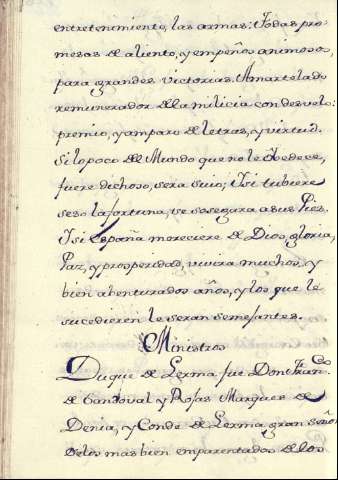 entretenimiento, las armas: Todas pro-
mesas de aliento, y empeños animosos,
para grandes victorias. Amartelado
remunerador de la milicia con desvelo:
premio, y amparo de letras, y virtud.
Si lo poco de Mundo que no le obedece,
fuere dichoso, sera suio; i si tubiere
seso la fortuna, se sosegara a sus Pies.
I si España mereciere de Dios, gloria,
Paz, y prosperidad, vivira muchos, y
bien abenturados años, y los que le
sucedieren le seran semejantes.
Ministros
Duque de Lerma fue Don Fran.co
de Sandoval y Rojas Marques de
Denia, y Conde de Lerma, gran señor
de los mas bien emparentados de los